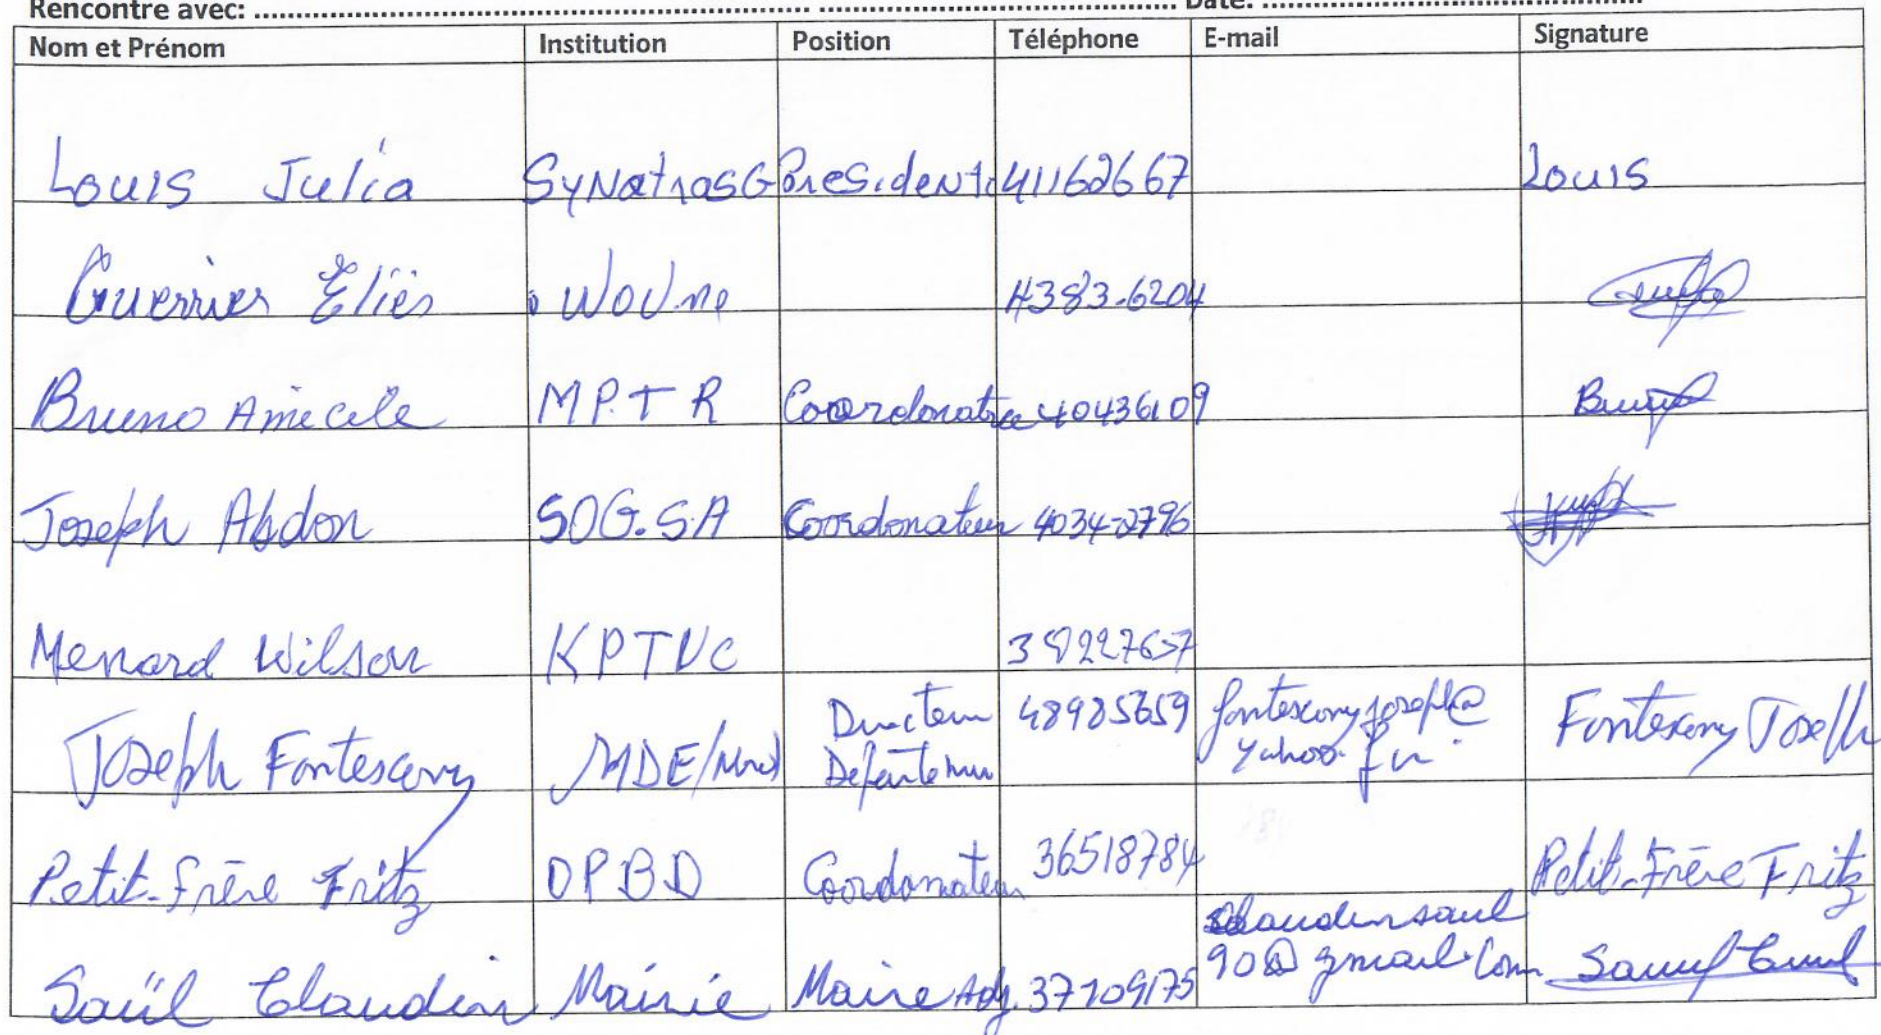 Rencontre avec: ........................ Date: ........................
Nom et Prénom Institution Position Téléphone E-mail Signature
Louis Julia SyNatrasG Presidente 41162667 Louis
Guerrier Eliès WOUne 4383-6204
Bruno Amecile MPTR Coordonatrice 40436109 Bruno
Joseph Abdon SOG.SA Coordonateur 4034-2796
Menard Wilson KPTNC 38227657
Joseph Fontescony MDE/ Directeur 48985659 fontesconyjoseph@ Fontescony Joseph
yahoo.fr
Petit-Frère Fritz OPBD Coordonateur 36518784 Petit-Frère Fritz
claudinsaul
Saül Claudin Mairie Maire Adj. 37109175 90@gmail.com